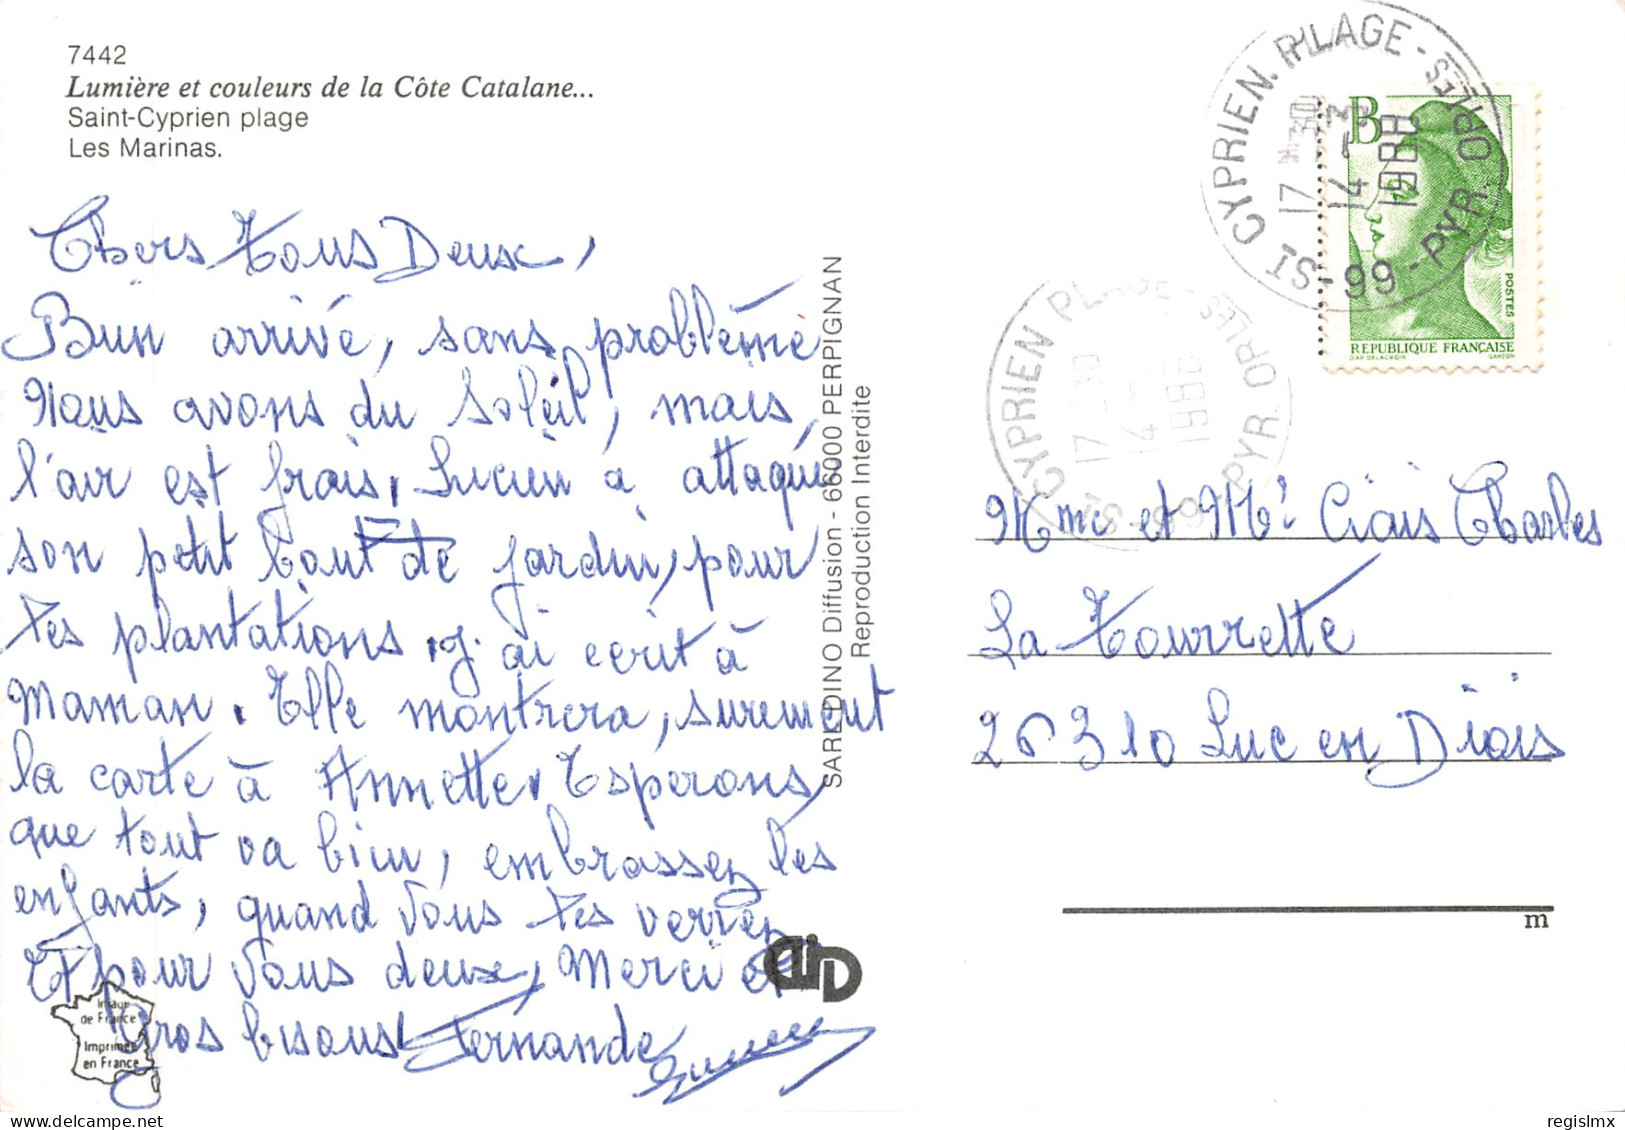 7442
Lumière et couleurs de la Côte Catalane...
Saint-Cyprien plage
Les Marinas.
Chers Tous Deux,
Bien arrivé, sans problème
Nous avons du Soleil, mais,
l'air est frais, Lucien a attaqué
son petit bout de jardin, pour
tes plantations, j'ai ecrit à
Maman. Elle montrera, surement
la carte à Annette. Esperons,
que tout va bien, embrassez les
enfants, quand Vous les verrez
Et pour Vous deux, Merci et
Gros bisous Fernande
Lucien
Image
de France
Imprimée
en France
SARL DINO Diffusion - 66000 PERPIGNAN
Reproduction Interdite
DiD
ST CYPRIEN. PLAGE - PYR. ORLES - 66
17 H 30
14 - 3
1988
ST CYPRIEN PLAGE - PYR. ORLES - 66
17 30
14 -
1988
B
POSTES
REPUBLIQUE FRANÇAISE
DAP DELACROIX GANDON
Mme et Mr Ciais Charles
La Tourrette
26310 Luc en Diois
m
regislmx